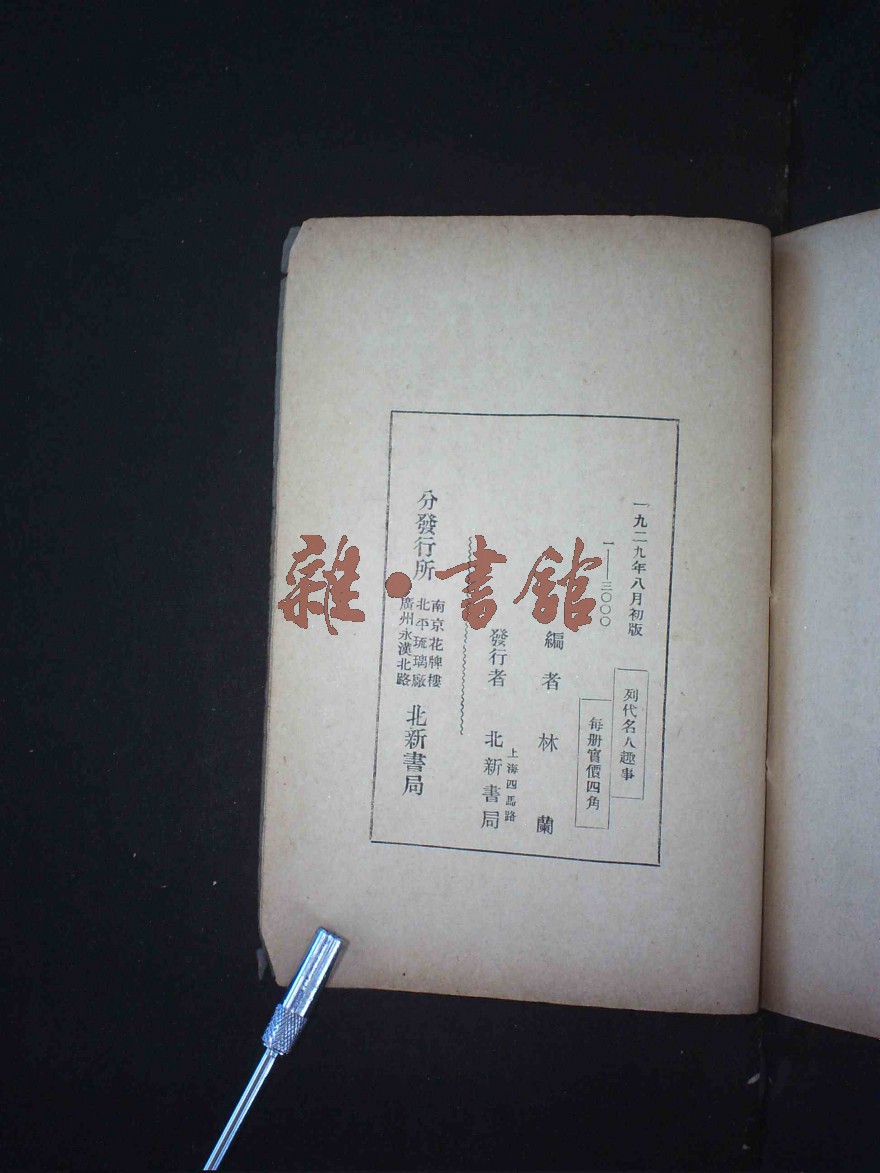 一九二九年八月初版
一——三〇〇〇
列代名人趣事
每册實價四角
編者 林蘭
上海四馬路
發行者 北新書局
分發行所
南京花牌樓
北平琉璃廠
廣州永漢北路
北新書局
雜·書館